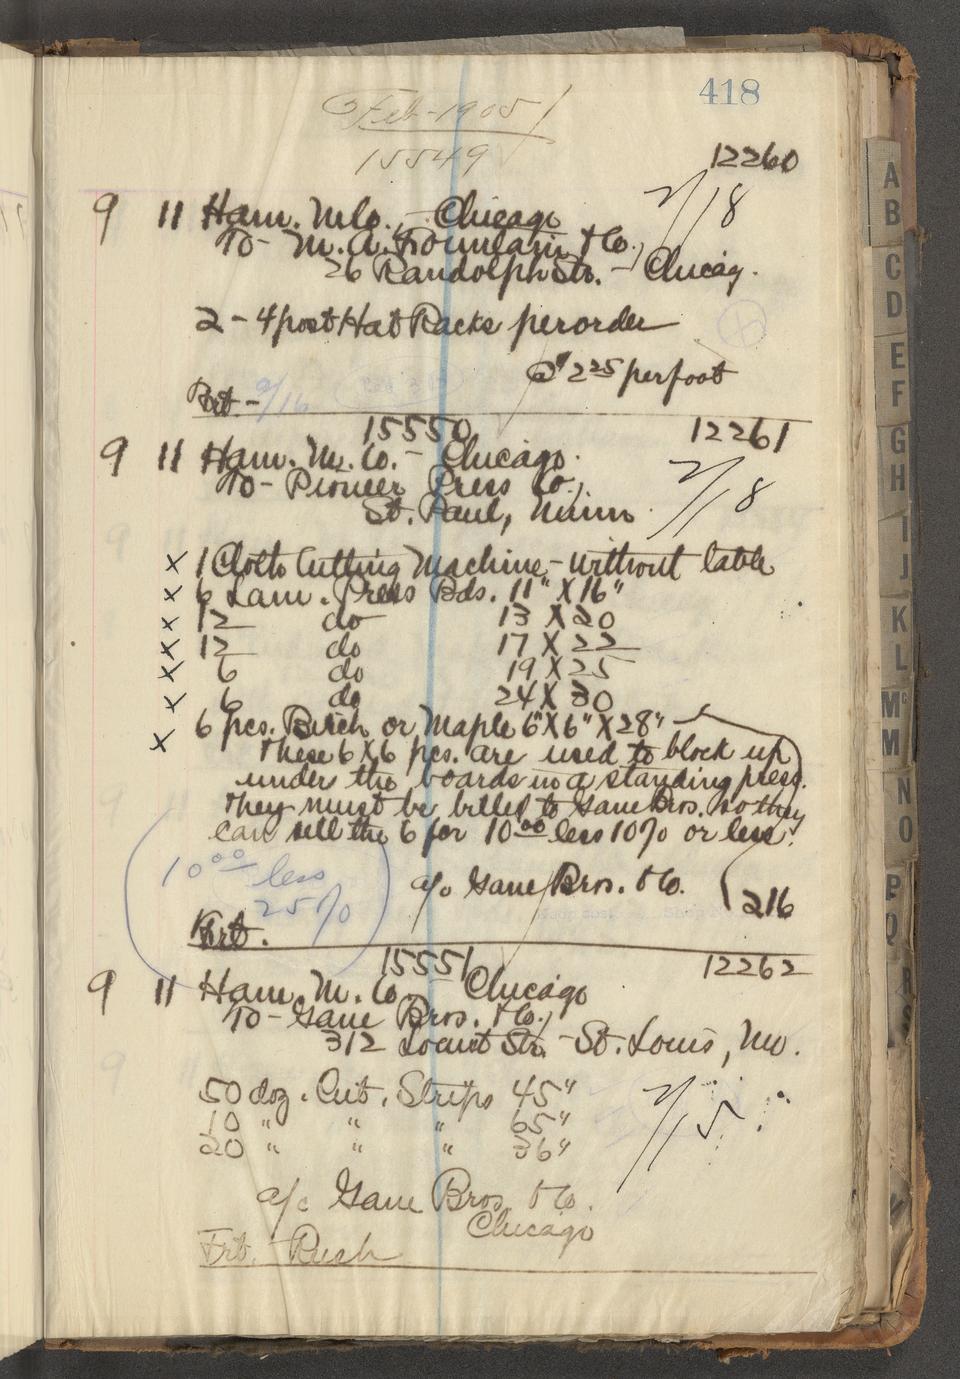 418
Feb-1905
15549
12260
9 11 Ham. M Co., - Chicago 2/18
To - M. A. Fountain & Co.,
26 Randolph Str. - Chicag.
2 - 4 post Hat Racks per order
@ 2 25 per foot
Frt - 2/16
15550 12261
9 11 Ham. M. Co. - Chicago. 2/18
To - Pioneer Press Co.,
St. Paul, Minn
x 1 Cloth Cutting Machine - without table
x 6 Lam. Press Bds. 11" X 16"
x 12 do 13 X 20
x 12 do 17 X 22
x 6 do 19 X 25
x 6 do 24 X 30
x 6 pcs. Birch or Maple 6" X 6" X 28"
These 6 X 6 pcs. are used to block up
under the boards in a standing press.
They must be billed to Gane Bros. so they
can sell the 6 for 10 00 less 10% or less.
10 00 less
25%
a/c Gane Bros. & Co. 216
Frt.
15551 12262
9 11 Ham. M. Co. Chicago
To - Gane Bros. & Co.,
312 Locust Str. - St. Louis, Mo.
50 doz. Cut. Strips 45" 2/15
10 " " " 65"
20 " " " 36"
a/c Gane Bros. & Co.
Chicago
Frt. Rush
A
B
C
D
E
F
G
H
I
J
K
L
Mc
M
N
O
P
Q
R
S